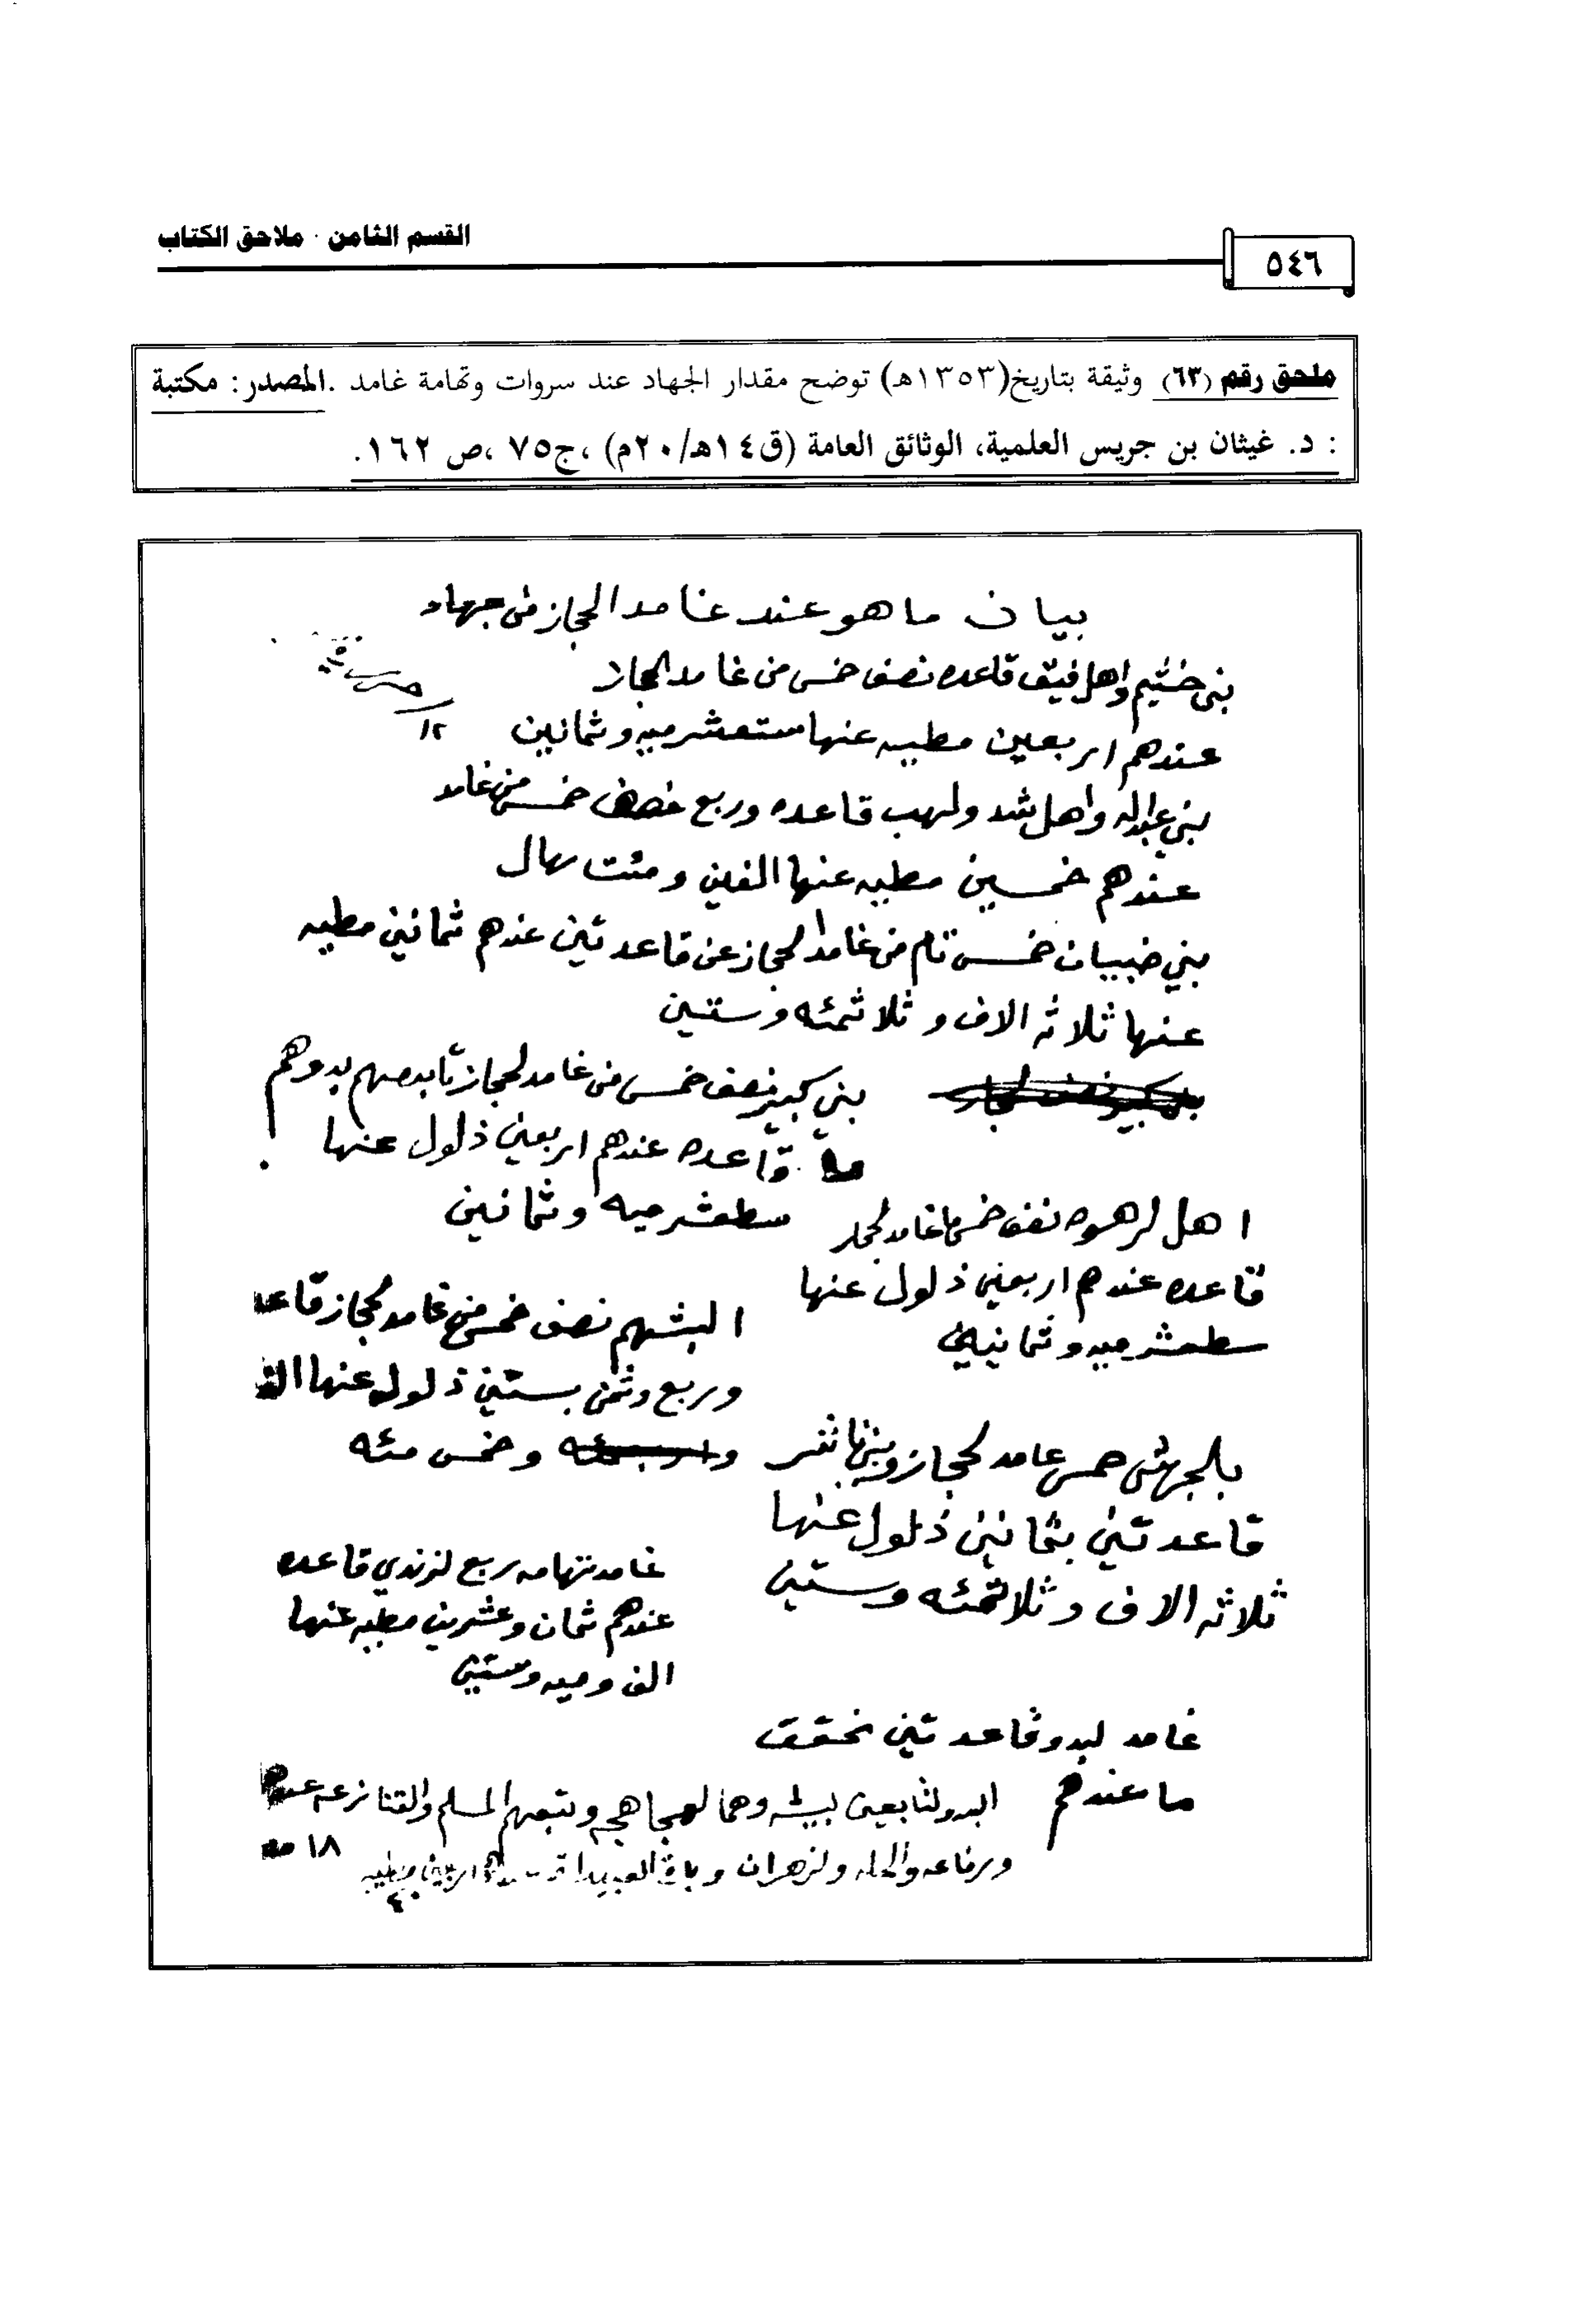 القسم الثامن · ملاحق الكتاب
٥٤٦
ملحق رقم (٦٣) وثيقة بتاريخ(١٣٥٣هـ) توضح مقدار الجهاد عند سروات وتهامة غامد .المصدر: مكتبة
: د. غيثان بن جريس العلمية، الوثائق العامة (ق١٤هـ/٢٠م) ،ج٧٥ ،ص ١٦٢.
بيان ما هو عند غامد الحجاز من جهاد
بني خثيم واهل فيق قاعده نصف خمس من غامد الحجاز
١٢
عندهم اربعين مطيه عنها ستعشر ميه وثمانين
بني عبدالله واهل شد ولهب قاعده وربع خمس من غامد
عندهم خمسين مطيه عنها الفين ومئت ريال
بني ضبيان خمس تام من غامد الحجاز عن قاعدتين عندهم ثمانين مطيه
عنها ثلاثه الاف وثلاثمئه وستين
بني كبير نصف خمس من غامد لحجاز تابعهم بدوهم
قاعده عندهم اربعين ذلول عنها
سطعشر ميه وثمانين
اهل لرهوه نصف خمس غامد لحجاز
قاعده عندهم اربعين ذلول عنها
سطعشر ميه وثمانين
البشهم نصف خمس من غامد لحجاز قاعد
وربع وثمن بستين ذلول عنها الف
وخمس مئه
بلجرشي خمس غامد لحجاز
قاعدتين بثمانين ذلول عنها
ثلاثه الاف وثلاثمئه وستين
غامد تهامه ربع لزندي قاعده
عندهم ثمان وعشرين مطيه عنها
الف وميه وستين
غامد لبدو قاعدتين نحقق
ما عندهم
البدو لتابعين لبيشه وهما لهجاهجه وتتبعهم المسلم والقنازعه عندهم
١٨
ورفاعه والحله ولزهران وباقي العبيدات اربعين مطيه
٤٠